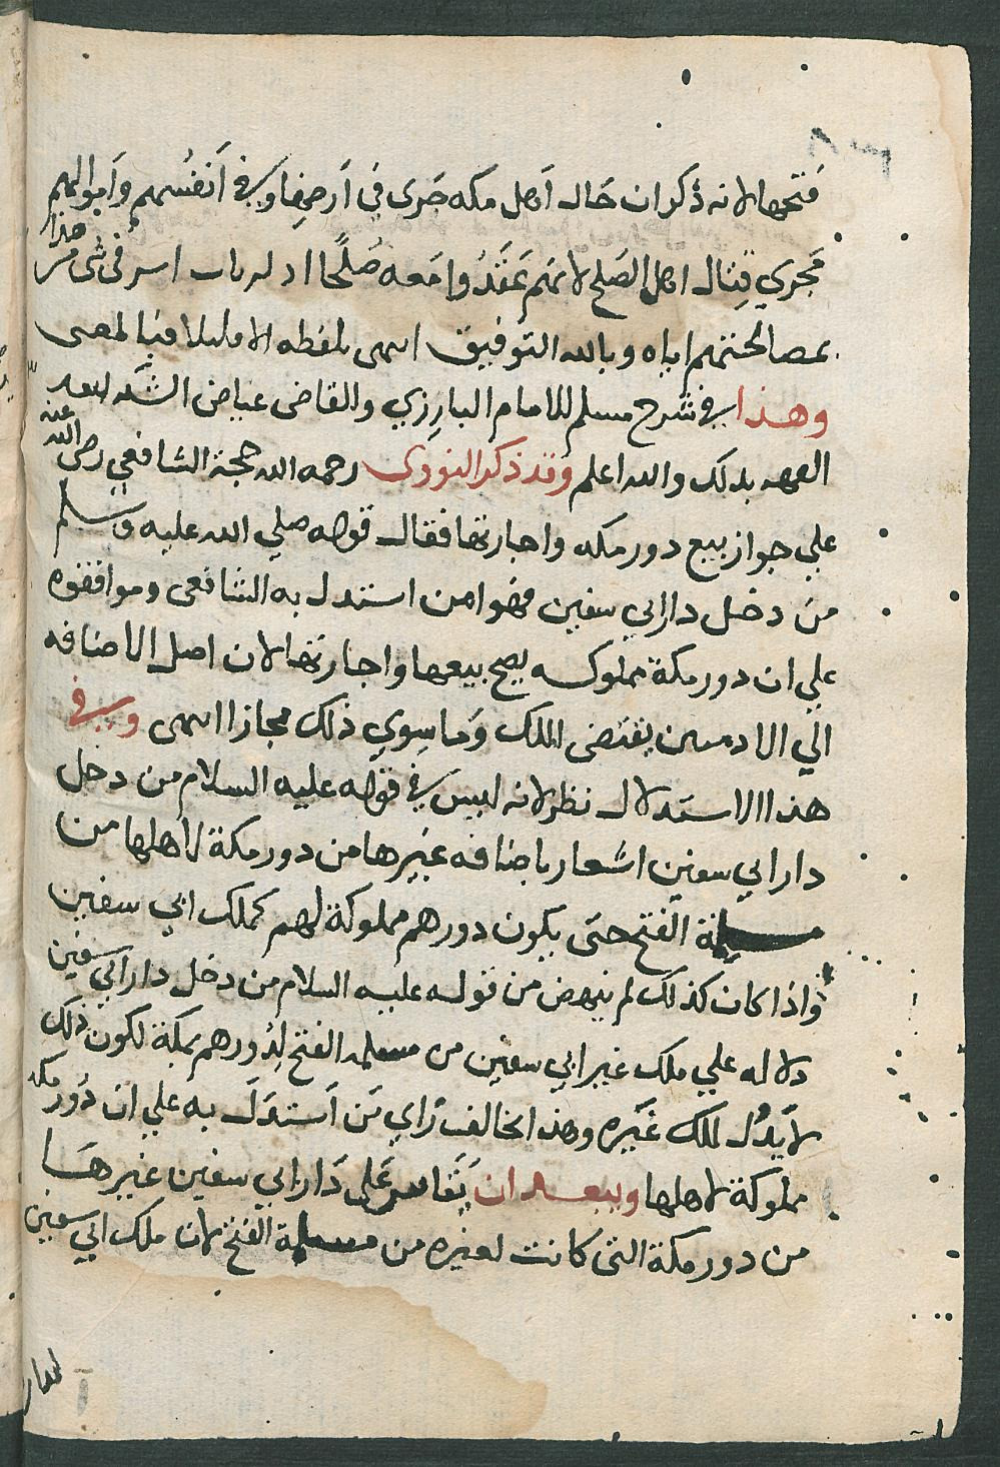 فتحها لانه ذكر ان حال اهل مكه جرى في ارضها وفي انفسهم واموالهم
مجري قتال اهل الصلح لانهم عقدوا معه صلحا
بمصالحتهم اياه وبالله التوفيق انتهى بلفظه الا قليلا فبالمعنى
وهذا في شرح مسلم للامام البارزي والقاضى عياض
بذلك والله اعلم وقد ذكر النووى رحمه الله حجة الشافعي رضى الله عنه
علي جواز بيع دور مكه واجارتها فقال قوله صلي الله عليه وسلم
من دخل دار ابي سفين فهو امن استدل به الشافعى وموافقوه
علي ان دور مكة مملوكه يصح بيعها واجارتها لان اصل الاضافه
الي الادميين يقتضى الملك وما سوي ذلك مجازا انتهى وفي
هذا الاستدلال نظر لانه ليس في قوله عليه السلام من دخل
دار ابي سفين اشعار باضافه غيرها من دور مكة لاهلها من
مسلمة الفتح حتى يكون دورهم مملوكة لهم كملك ابي سفين
واذا كان كذلك لم ينهض من قوله عليه السلام من دخل دار ابي سفين
دلاله علي ملك غير ابي سفين من مسلمه الفتح لدورهم بمكة لكون ذلك
لا يدل لملك غيره وهذا يخالف راي من استدل به علي ان دور مكه
مملوكة لاهلها ويبعد ان يقاس على دار ابي سفين غيرها
من دور مكة التى كانت لغيره من مسلمة الفتح لان ملك ابي سفين